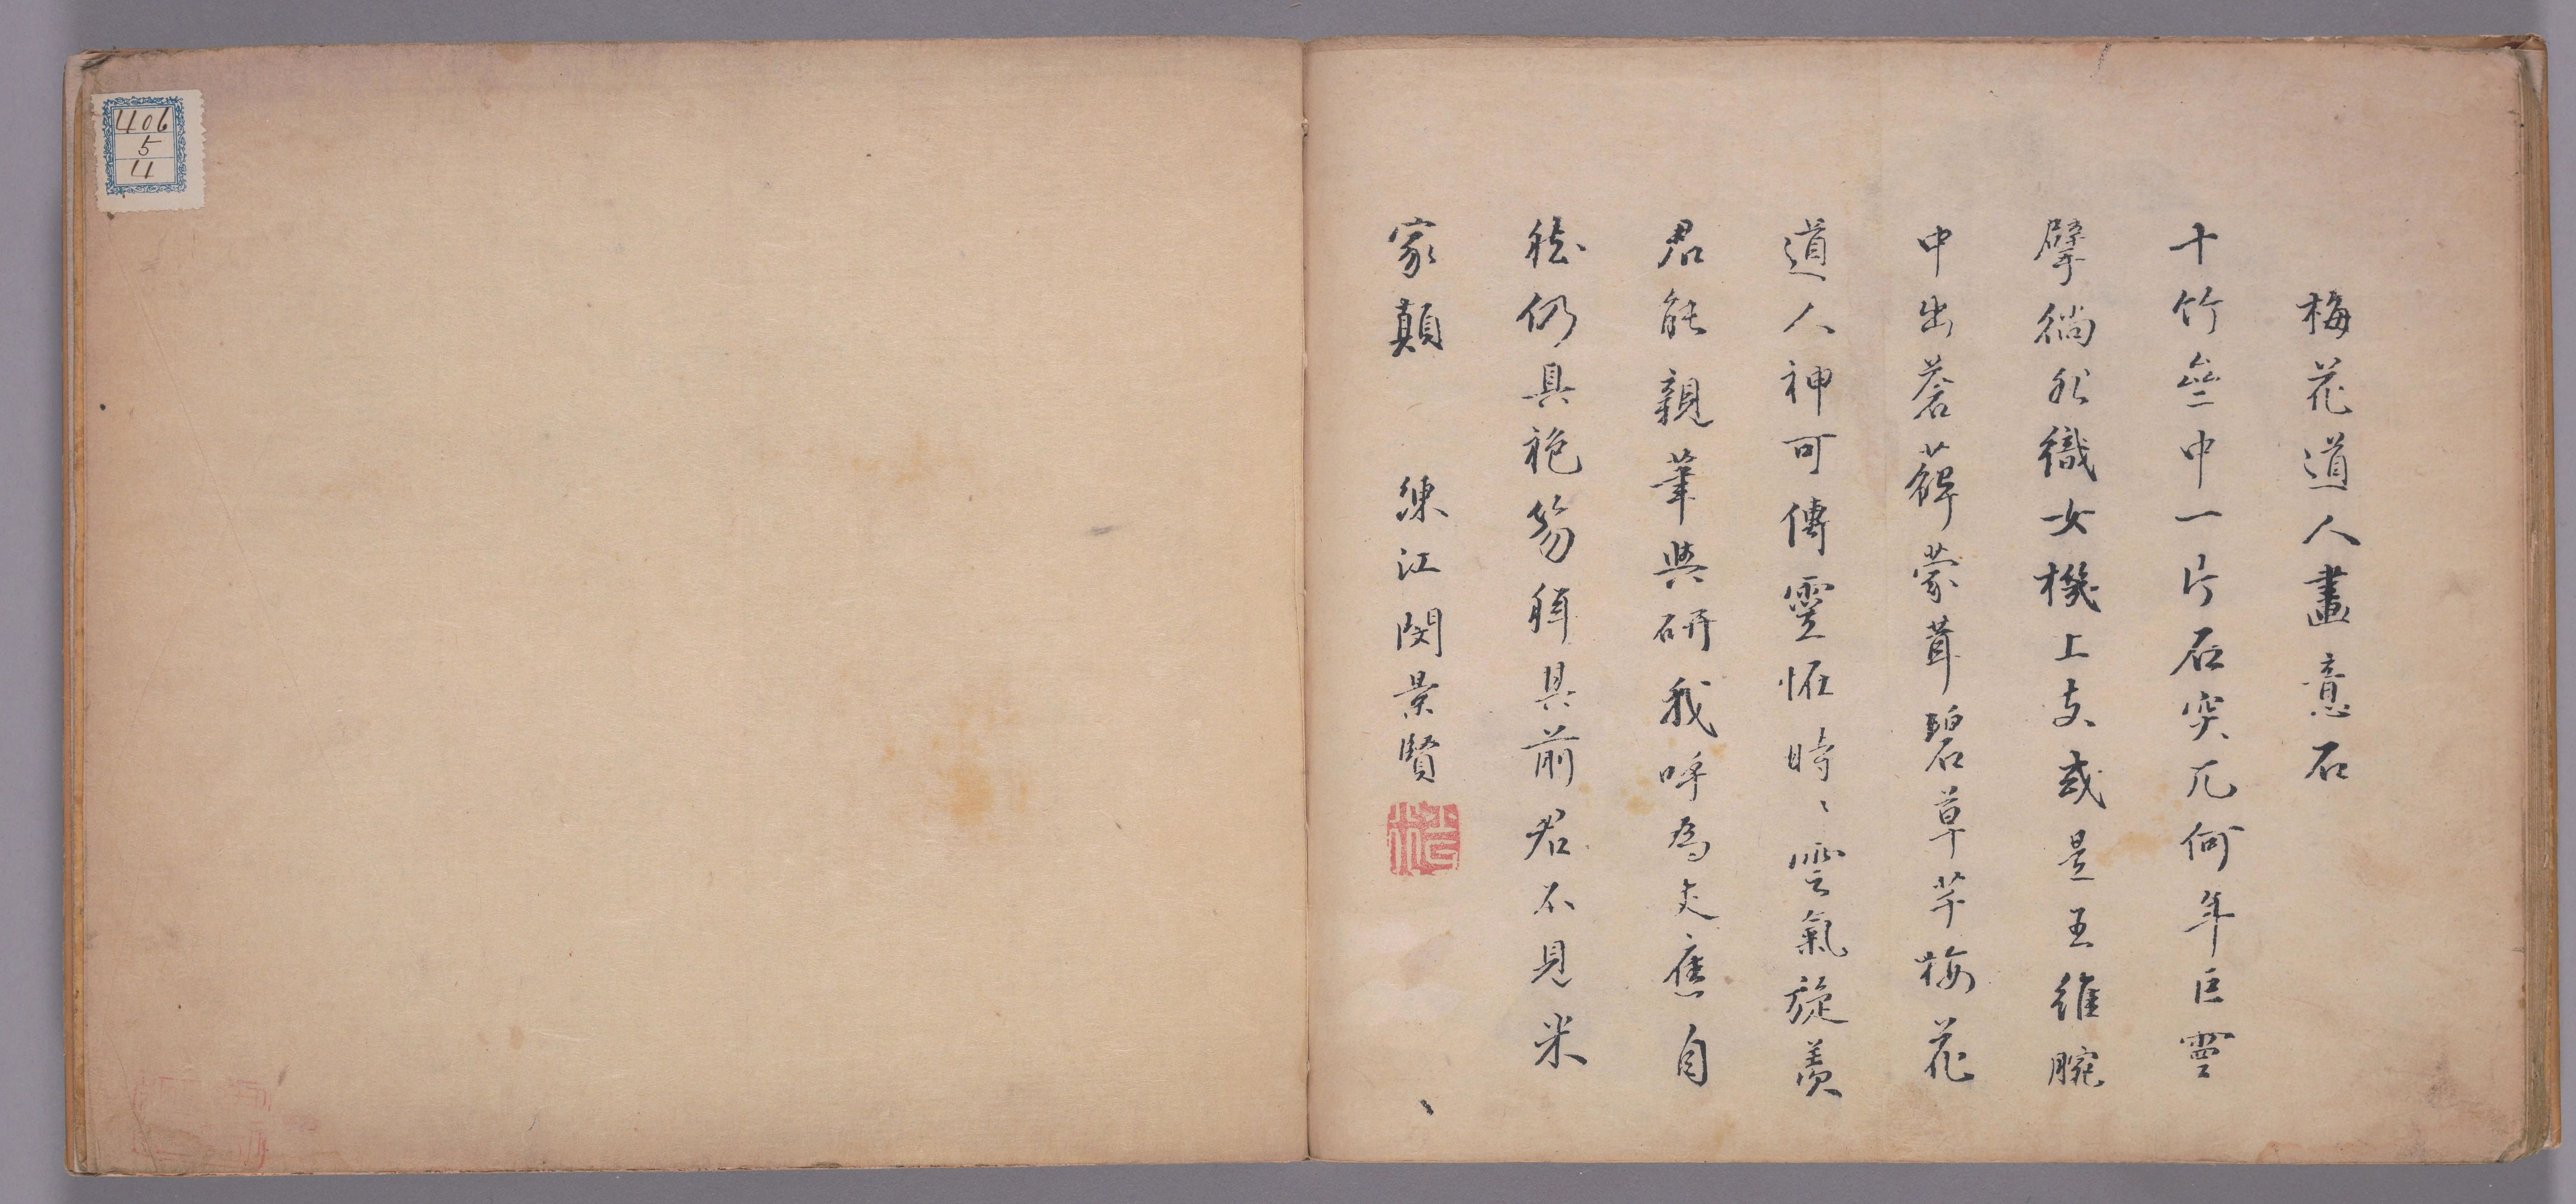 梅花道人畫意石
十竹坐中一片石突兀何年巨靈
擘徜如織女機上支或是王維腕
中出蒼蘚蒙茸碧草芊梅花
道人神可傳靈怪時〻雲氣旋羨
君能親筆與研我呼為丈應自
仍具袍笏拜其前君不見米
家顛 練江閔景賢
、
406
5
4